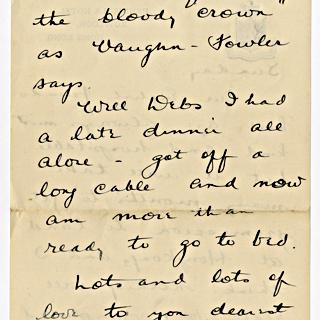 the bloody "crown"
as Vaughn-Fowler
says.
Well Debs I had
a late dinner all
alone - got off a
long cable and now
am more than
ready to go to bed.
Lots and lots of
love to you dearest